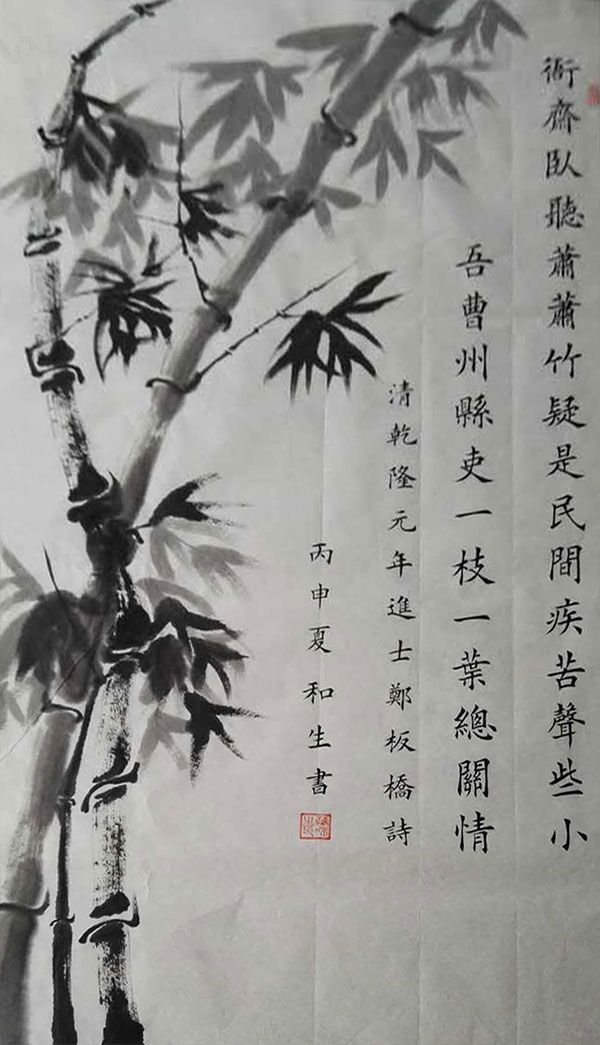 衙齋臥聽蕭蕭竹疑是民間疾苦聲些小
吾曹州縣吏一枝一葉總關情
清乾隆元年進士鄭板橋詩
丙申夏和生書